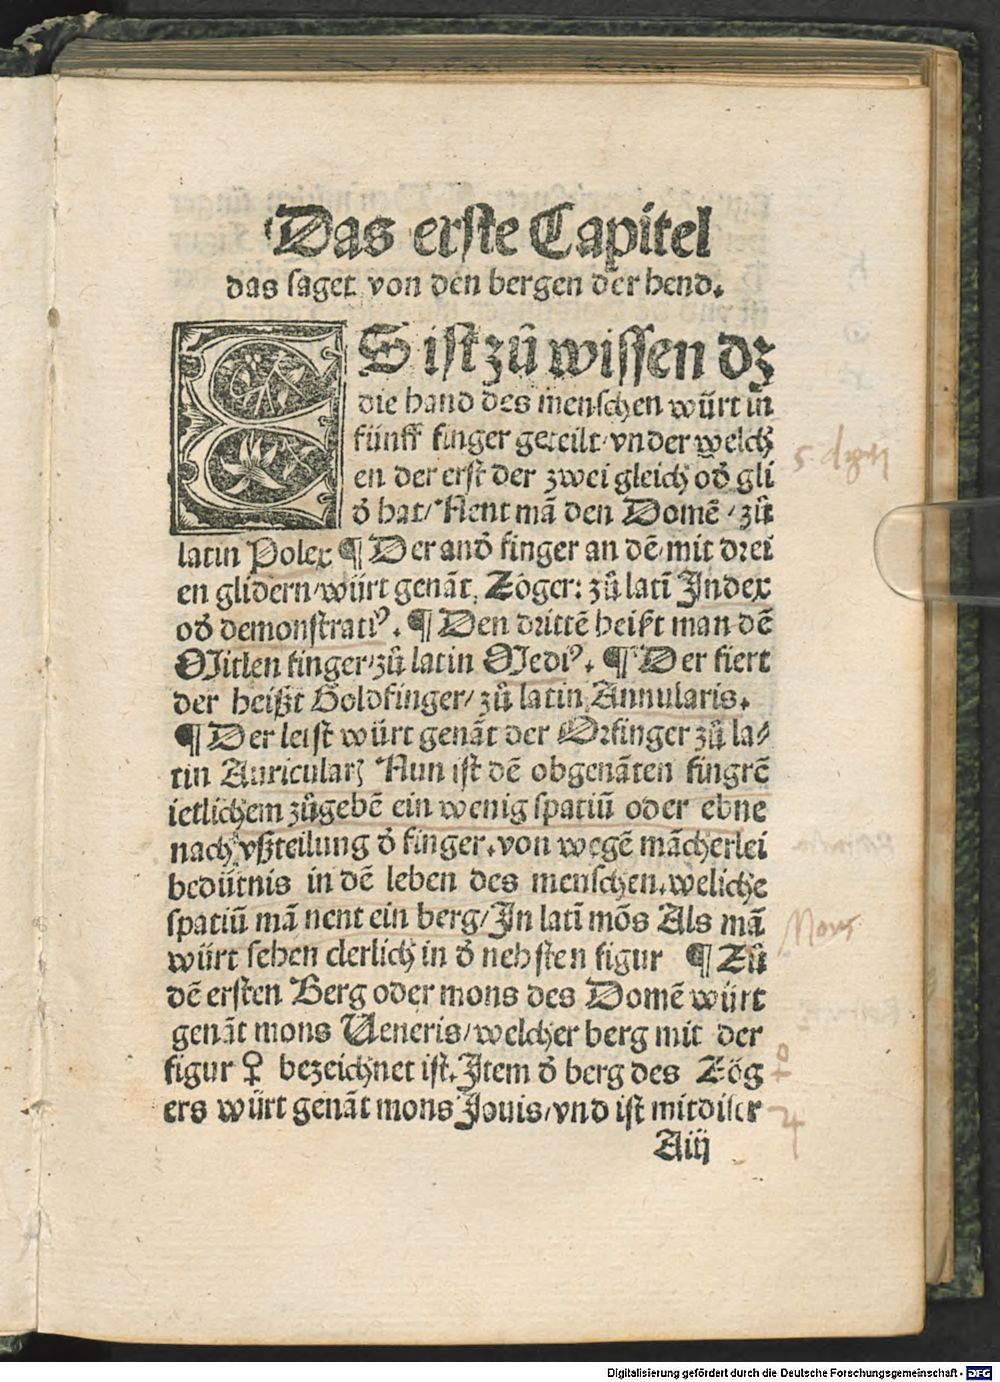 Das erste Capitel
das saget von den bergen der hend.
ES ist zů wissen dz
die hand des menschen würt in
fünff finger geteilt/vnder welch
en der erst der zwei gleich od̕ gli
d̕ hat/Nent mā den Domē/zů
latin Polex ¶ Der and̕ finger an dē/mit drei
en glidern/würt genāt, Zöger: zů latī Index
od̕ demonstratiꝰ. ¶ Den drittē heißt man dē
Mitlen finger/zů latin Mediꝰ. ¶ Der fiert
der heißt Goldfinger/zů latin Annularis.
¶ Der leist würt genāt der Orfinger zů la⸗
tin Auricularꝫ Nun ist dē obgenāten fingrē
ietlichem zůgebē ein wenig spatiū oder ebne
nach vßteilung d̕ finger.von wegē mācherlei
bedütnis in dē leben des menschen.weliche
spatiū mā nent ein berg/In latī mōs Als mā
würt sehen clerlich in d̕ nehsten figur ¶ Zů
dē ersten Berg oder mons des Domē würt
genāt mons Ueneris/welcher berg mit der
figur ♀ bezeichnet ist.Item d̕ berg des Zög
ers würt genāt mons Jouis/vnd ist mit diser
Aiij
5
Mons
♀
♃
Digitalisierung gefördert durch die Deutsche Forschungsgemeinschaft - DFG